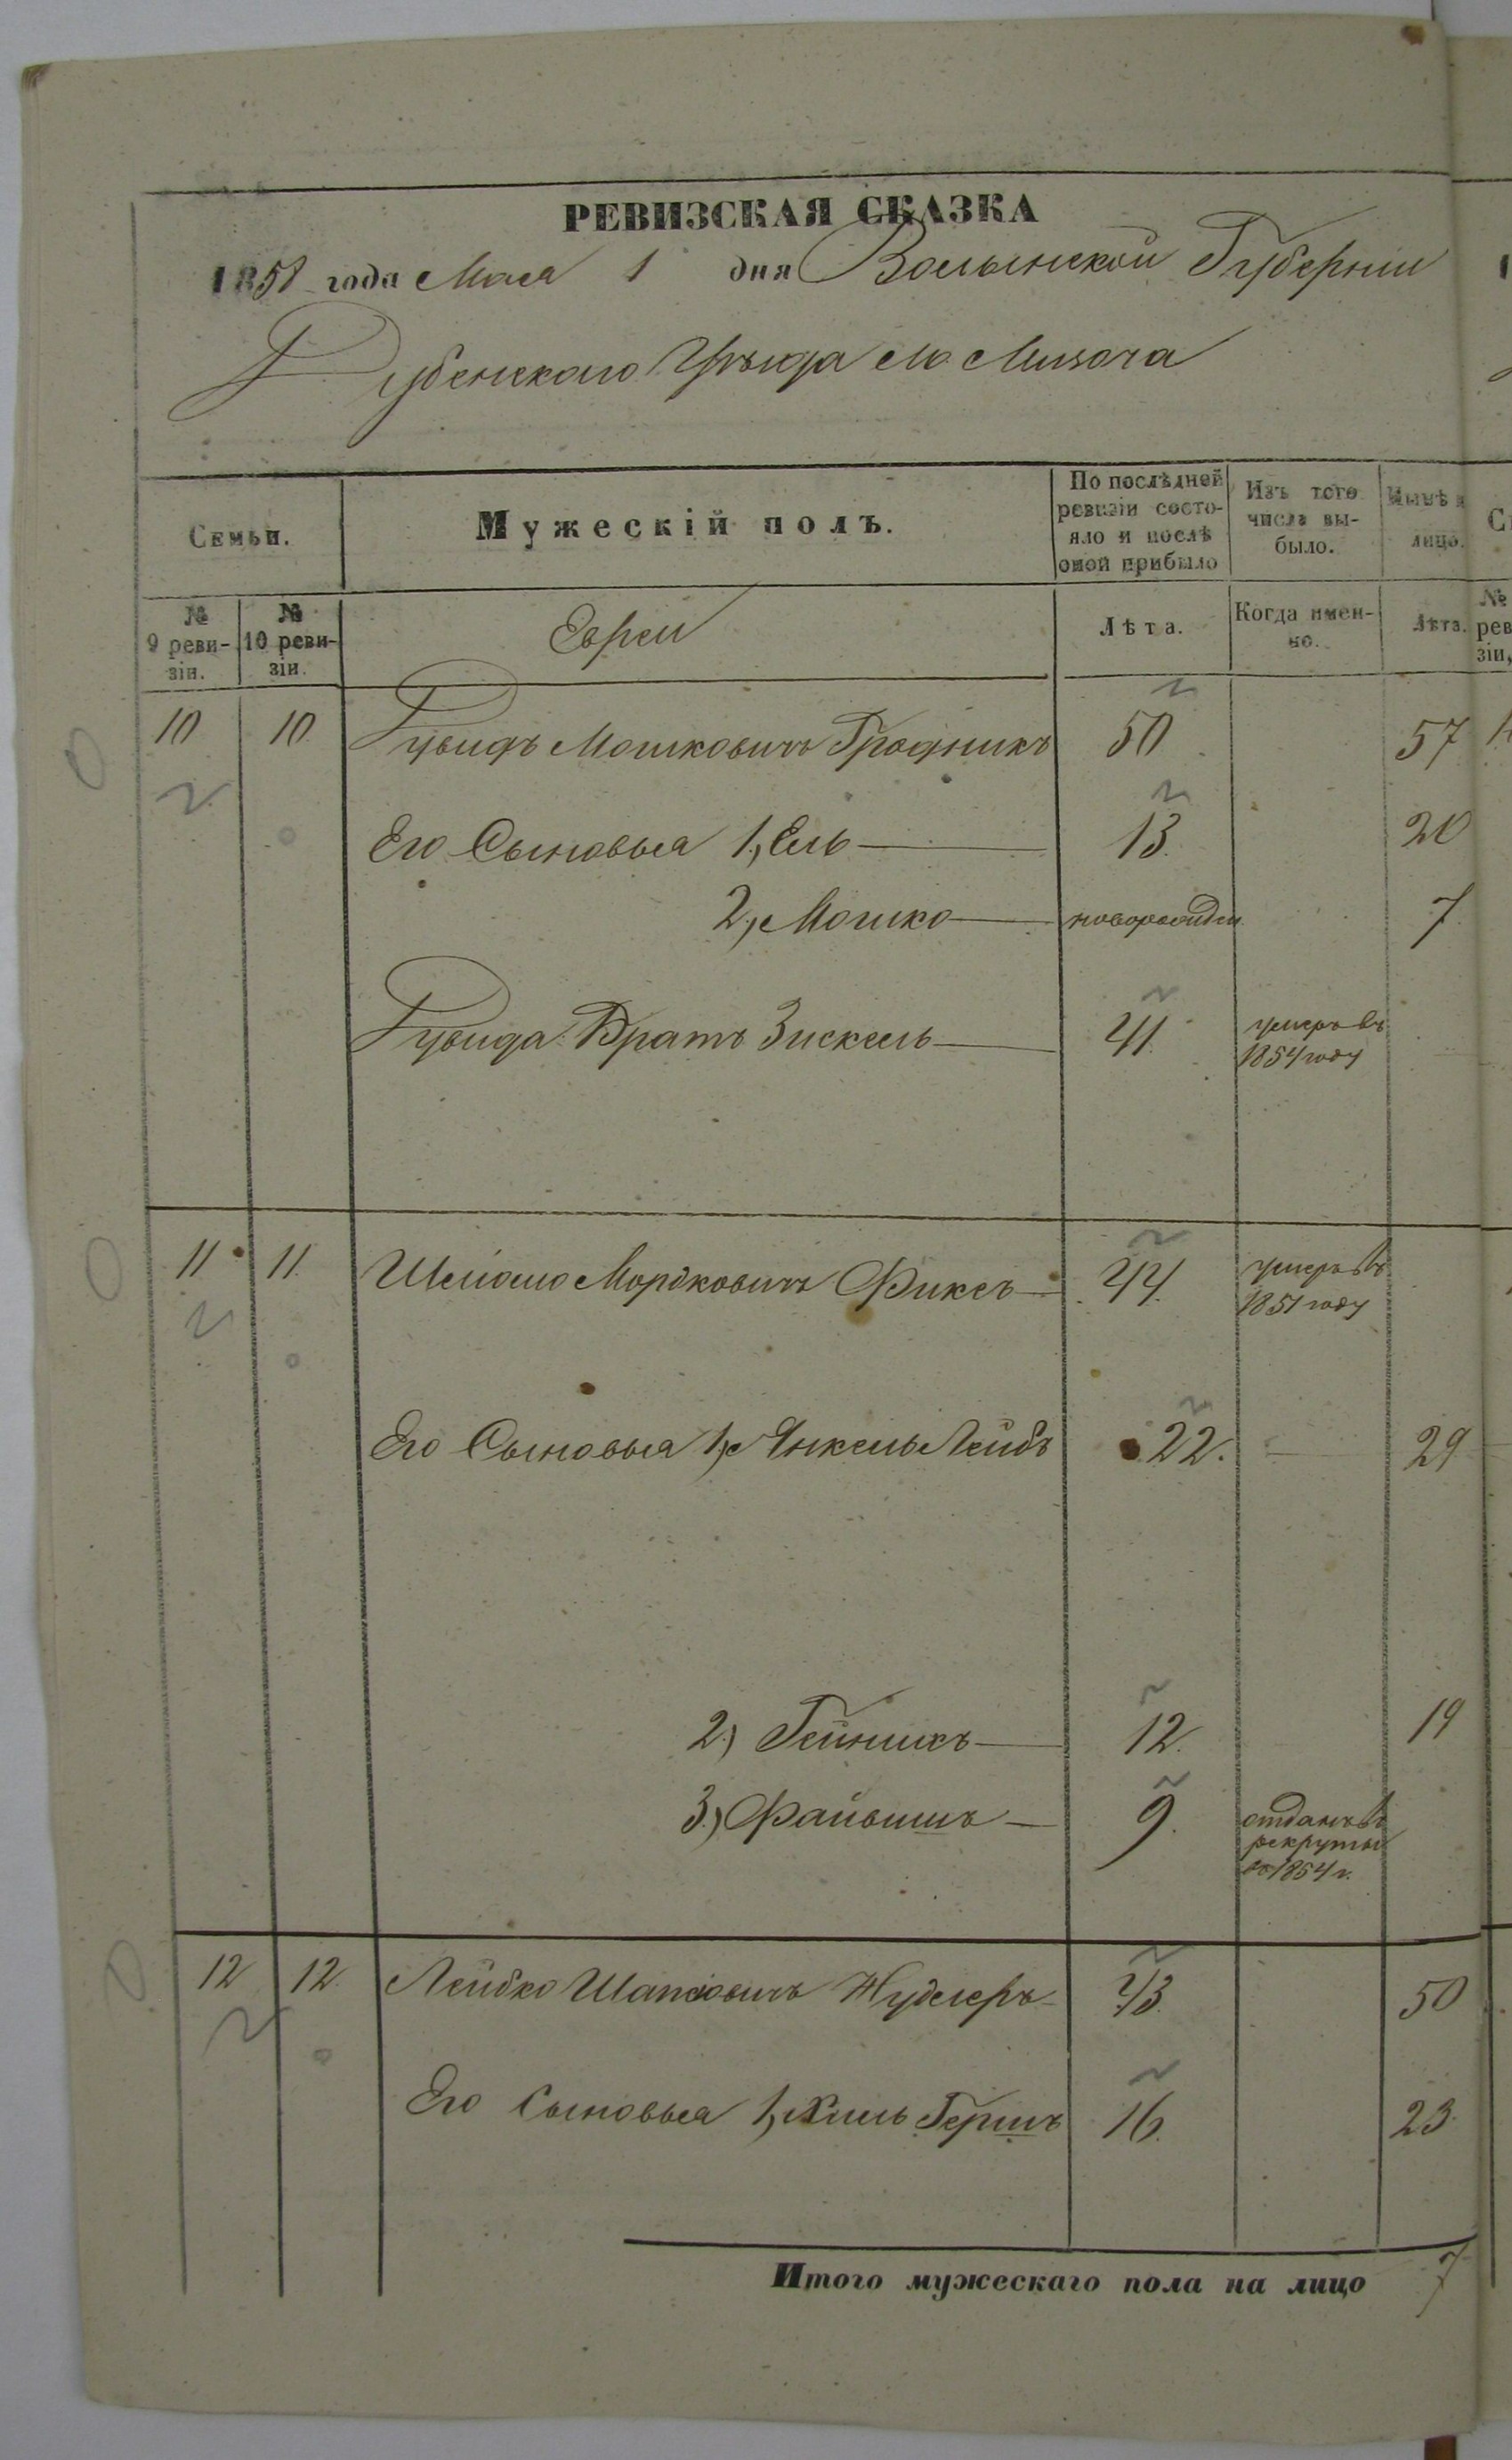 РЕВИЗСКАЯ СКАЗКА
1858 года Мая 1 дня Волынской Губерніи
Дубенскаго Уѣзда М. Мизоча
Семьи.
Мужескій полъ.
По послѣдней ревизіи состо-
яло и послѣ
оной прибыло
Изъ того
числа вы-
было.
Нынѣ на
лицо.
№
9 реви-
зіи.
№
10 реви-
зіи.
Евреи
Лѣта.
Когда имен-
но.
Лѣта.
10 10. Дувидъ Мошковичъ Гродникъ 50 57
Его Сыновья 1, Ель 13. 20
2, Мошко 7
Дувида Братъ Зискель 41. умеръ въ
1854 году
11 11. Мордковичъ Фиксъ 44. умеръ въ
1851 году
Его Сыновья 1, Янкель Лейбъ 22. 29
2.) 12. 19
3.) Файвишъ 9. отданъ въ
рекруты
въ 1854 г.
12 12. Лейбко Шапсовичъ 43. 50
Его Сыновья 1, Хиль Гершъ 16. 23
Итого мужескаго пола на лицо 7